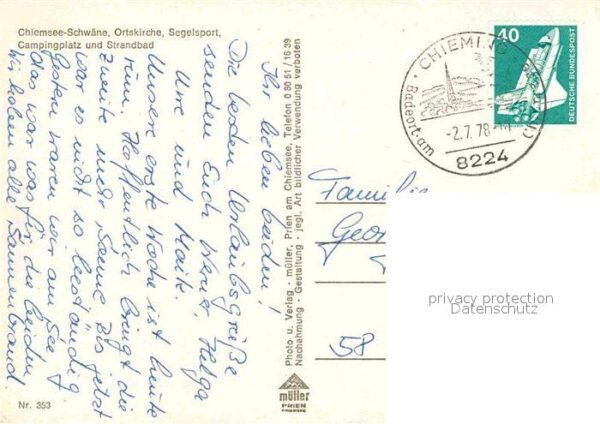 Chiemsee-Schwäne, Ortskirche, Segelsport,
Campingplatz und Strandbad
Ihr lieben beiden!
Die besten Urlaubsgrüße
senden Euch Werner, Helga
Ute und Maik.
Unsere erste Woche ist heute
rum. Hoffentlich bringt die
zweite mehr Sonne. Bis jetzt
war es nicht so beständig
Gestern waren wir am See
das war was für die beiden
Wir haben alle Sonnenbrand
Nr. 353
Photo u. Verlag · müller, Prien am Chiemsee, Telefon 0 80 51 / 16 39
Nachahmung · Gestaltung · jegl. Art bildlicher Verwendung verboten
müller
PRIEN
CHIEMSEE
CHIEMING
Badeort · am
-2.7.78
8224
40
DEUTSCHE BUNDESPOST
Familie
Geor
58
privacy protection
Datenschutz